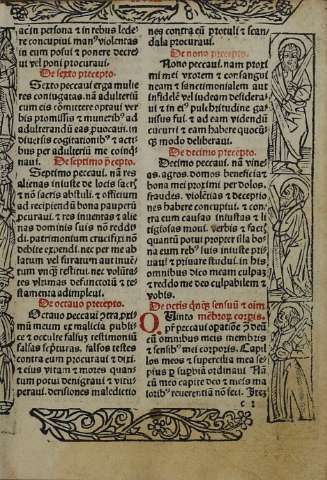 ac in persona et in rebus lede
re concupiui man⁹ violentas
in eum posui et ponere decre
ui vel poni procuraui.
De sexto precepto.
Sexto peccaui erga mulie
res coniugatas. nã adulteriũ
cum eis cõmittere optaui ver
bis promissis et munerib⁹ ad
adulterandũ eas ꝓuocaui. in
diuersis cogitatiõib⁹ et acti
bus per adulteriũ me coinq̃
naui.
De septimo p̃cepto.
Septimo peccaui. nã res
alienas iniuste de locis sacr̃
et nõ sacris abstuli. et officium
ad recipiendũ bona pauperũ
procuraui. et res inuentas et alie
nas dominis suis nõ reddy
di. patrimonium crucifixi nõ
debite expendi. nec per me ab
latum vel furatum aut inuẽ
tum vnq̃ restitui. nec volũta
tes vltimas defunctorũ et te
stamenta adimpleui.
De octauo precepto.
Octauo peccaui ꝯtra prixi
mũ meum ex malicia public
e et occulte falsuȝ testimoniũ
falsas scripturas. falsos testes
contra eum procuraui et dixi
et eius vitam et mores quan
tum potui denigraui et vitu
peraui. detisiones maledicti
nes contra eũ protuli et scan
dala procuraui.
De nono precepto.
Nono peccaui. nam proxi
mi mei vxorem et consangui
neam et sanctimonialem aut
infidelẽ vel iudeam desidera
ui et in ei⁹ pulchritudine ga
uisus fui. et ad eam videndũ
cucurri et eam habere quocũ
q̃ modo deliberaui.
De decimo precepto.
Decimo peccaui. nã vine
as. agros. domos beneficia et
bona mei proximi per dolos.
fraudes. violẽtias et deceptio
nes habere concupiui. et con
tra eum causas iniustas et li
tigiosas moui. verbis et factis
quantũ potui propter illa bo
na eum reb⁹ suis iniuste pri
uaui et priuare studui. in his
omnibus dico meam culpaȝ
et reddo me deo culpabilem et
vobis.
De petis qnq̃ sensuũ et oim
mẽbrorȝ corpis.
Quinto
peccaui opatiõe
cũ omnibus meis membris
et sensib⁹ mei corporis. Capil
los meos et supercilia mea se
pius ꝓ supbia ordinaui. Nã
cũ meo capite deo et meis ma
iorib⁹ reuerentiã nõ feci. Iteȝ
c i